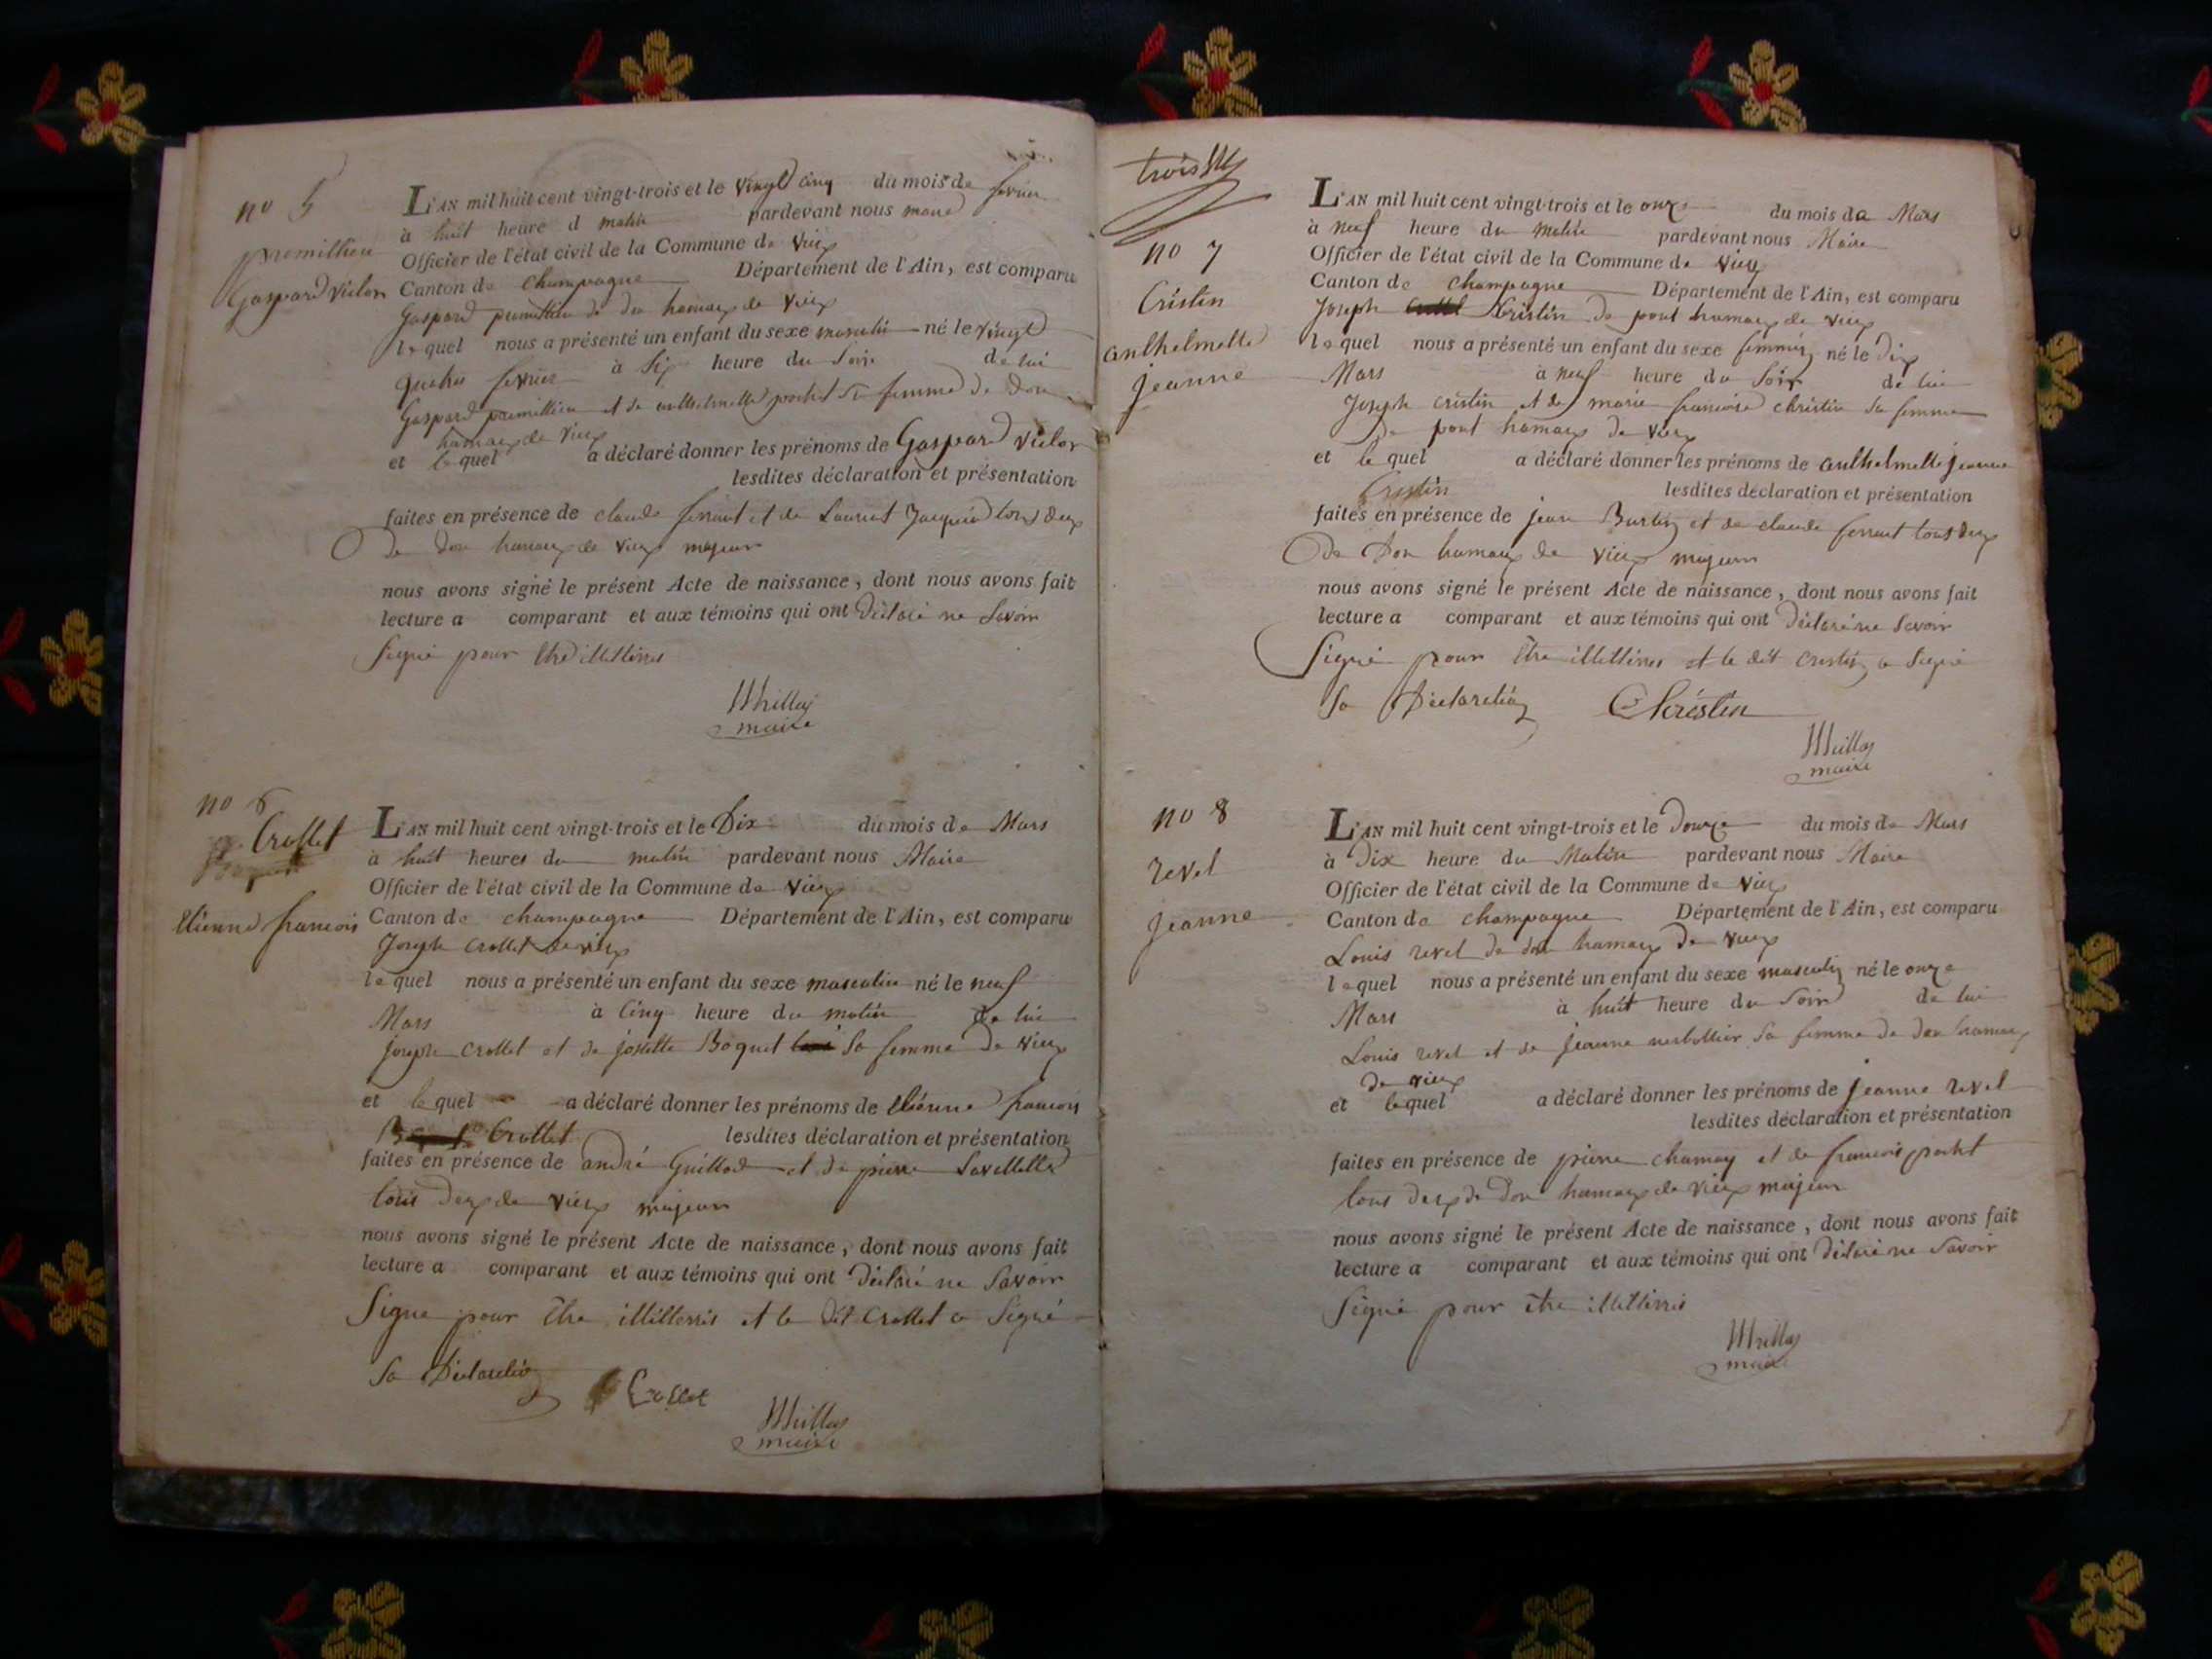 no 5
premillieu
Gaspard victor
L'AN mil huit cent vingt-trois et le vingt cinq du mois de fevrier
à huit heure d matin pardevant nous maire
Officier de l'état civil de la Commune de vieux
Canton de champagne Département de l'Ain, est comparu
Gaspard premillieu de don hamaux de vieux
lequel nous a présenté un enfant du sexe masculin né le vingt
quatre fevrier à six heure du soir de lui
Gaspard premillieu et de anthelmette pochet sa femme de Don
hamaux de vieux
et lequel a déclaré donner les prénoms de Gaspard victor
lesdites déclaration et présentation
faites en présence de claude ferraut et de Laurent Jacquin tous deux
de Don hamaux de vieux majeurs
nous avons signé le présent Acte de naissance, dont nous avons fait
lecture a comparant et aux témoins qui ont Déclaré ne Savoir
Signé pour être illittérés
maire
no 6
Crollet
etienne francois
L'AN mil huit cent vingt-trois et le Dix du mois de Mars
à huit heures du matin pardevant nous Maire
Officier de l'état civil de la Commune de vieux
Canton de champagne Département de l'Ain, est comparu
Joseph Crollet de vieux
lequel nous a présenté un enfant du sexe masculin né le neuf
Mars à Cinq heure du matin de lui
joseph crollet et de josette Boquet sa femme De vieux
et lequel a déclaré donner les prénoms de etienne francois
Crollet lesdites déclaration et présentation
faites en présence de andré Guillod et de pierre Savellette
tous deux de vieux majeurs
nous avons signé le présent Acte de naissance, dont nous avons fait
lecture a comparant et aux témoins qui ont Déclaré ne Savoir
Signe pour être illitterrés et le Dit Crollet a Signé
Sa Déclaration Crollet
maire
trois
no 7
Cristin
anthelmette
jeanne
L'AN mil huit cent vingt-trois et le onze du mois de Mars
à neuf heure du matin pardevant nous Maire
Officier de l'état civil de la Commune de vieux
Canton de champagne Département de l'Ain, est comparu
Joseph Cristin de pont hamaux de vieux
lequel nous a présenté un enfant du sexe feminin né le dix
Mars à neuf heure du Soir de lui
Joseph cristin et de marie francoise christin sa femme
de pont hamaux de vieux
et lequel a déclaré donner les prénoms de anthelmette jeanne
Cristin lesdites déclaration et présentation
faites en présence de jean Burtin et de claude ferraut tous deux
De Don hamaux de vieux majeurs
nous avons signé le présent Acte de naissance, dont nous avons fait
lecture a comparant et aux témoins qui ont Déclaré ne Savoir
Signé pour être illittérés et le dit cristin a Signé
Sa Déclaration Christin
maire
no 8
revel
jeanne
L'AN mil huit cent vingt-trois et le Douze du mois de Mars
à Dix heure du Matin pardevant nous Maire
Officier de l'état civil de la Commune de vieux
Canton de champagne Département de l'Ain, est comparu
Louis revel de don hamaux De vieux
lequel nous a présenté un enfant du sexe masculin né le onze
Mars à huit heure du Soir de lui
Louis revel et de jeanne sa femme de don hamaux
de vieux
et lequel a déclaré donner les prénoms de jeanne revel
lesdites déclaration et présentation
faites en présence de pierre chamay et de francois pochet
tous deux de Don hamaux de vieux majeurs
nous avons signé le présent Acte de naissance, dont nous avons fait
lecture a comparant et aux témoins qui ont Déclaré ne Savoir
Signé pour être illittérrés
maire